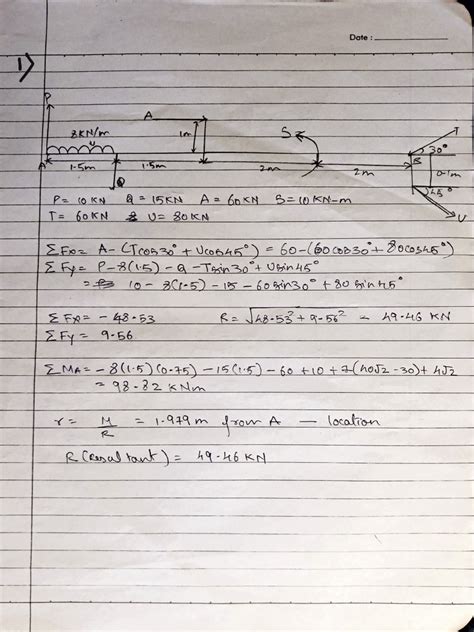 Date :
1)
P
A
8KN/m
1m
S
T
30°
U
B
0.1m
A
1.5m
1.5m
2m
2m
Q
45°
U
P = 10 KN Q = 15KN A = 60KN S = 10 KN-m
T = 60KN U = 80KN
ΣFx = A - (Tcos30° + Ucos45°) = 60 - (60cos30° + 80cos45°)
ΣFy = P - 8(1.5) - Q - Tsin30° + Usin45°
= 10 - 8(1.5) - 15 - 60sin30° + 80sin45°
ΣFx = - 48.53 R = √48.53² + 9.56² = 49.46 KN
ΣFy = 9.56
ΣMA = - 8(1.5)(0.75) - 15(1.5) - 60 + 10 + 7(40√2 - 30) + 4√2
= 98.82 KNm
r = M/R = 1.979m from A — location
R (Resultant) = 49.46 KN